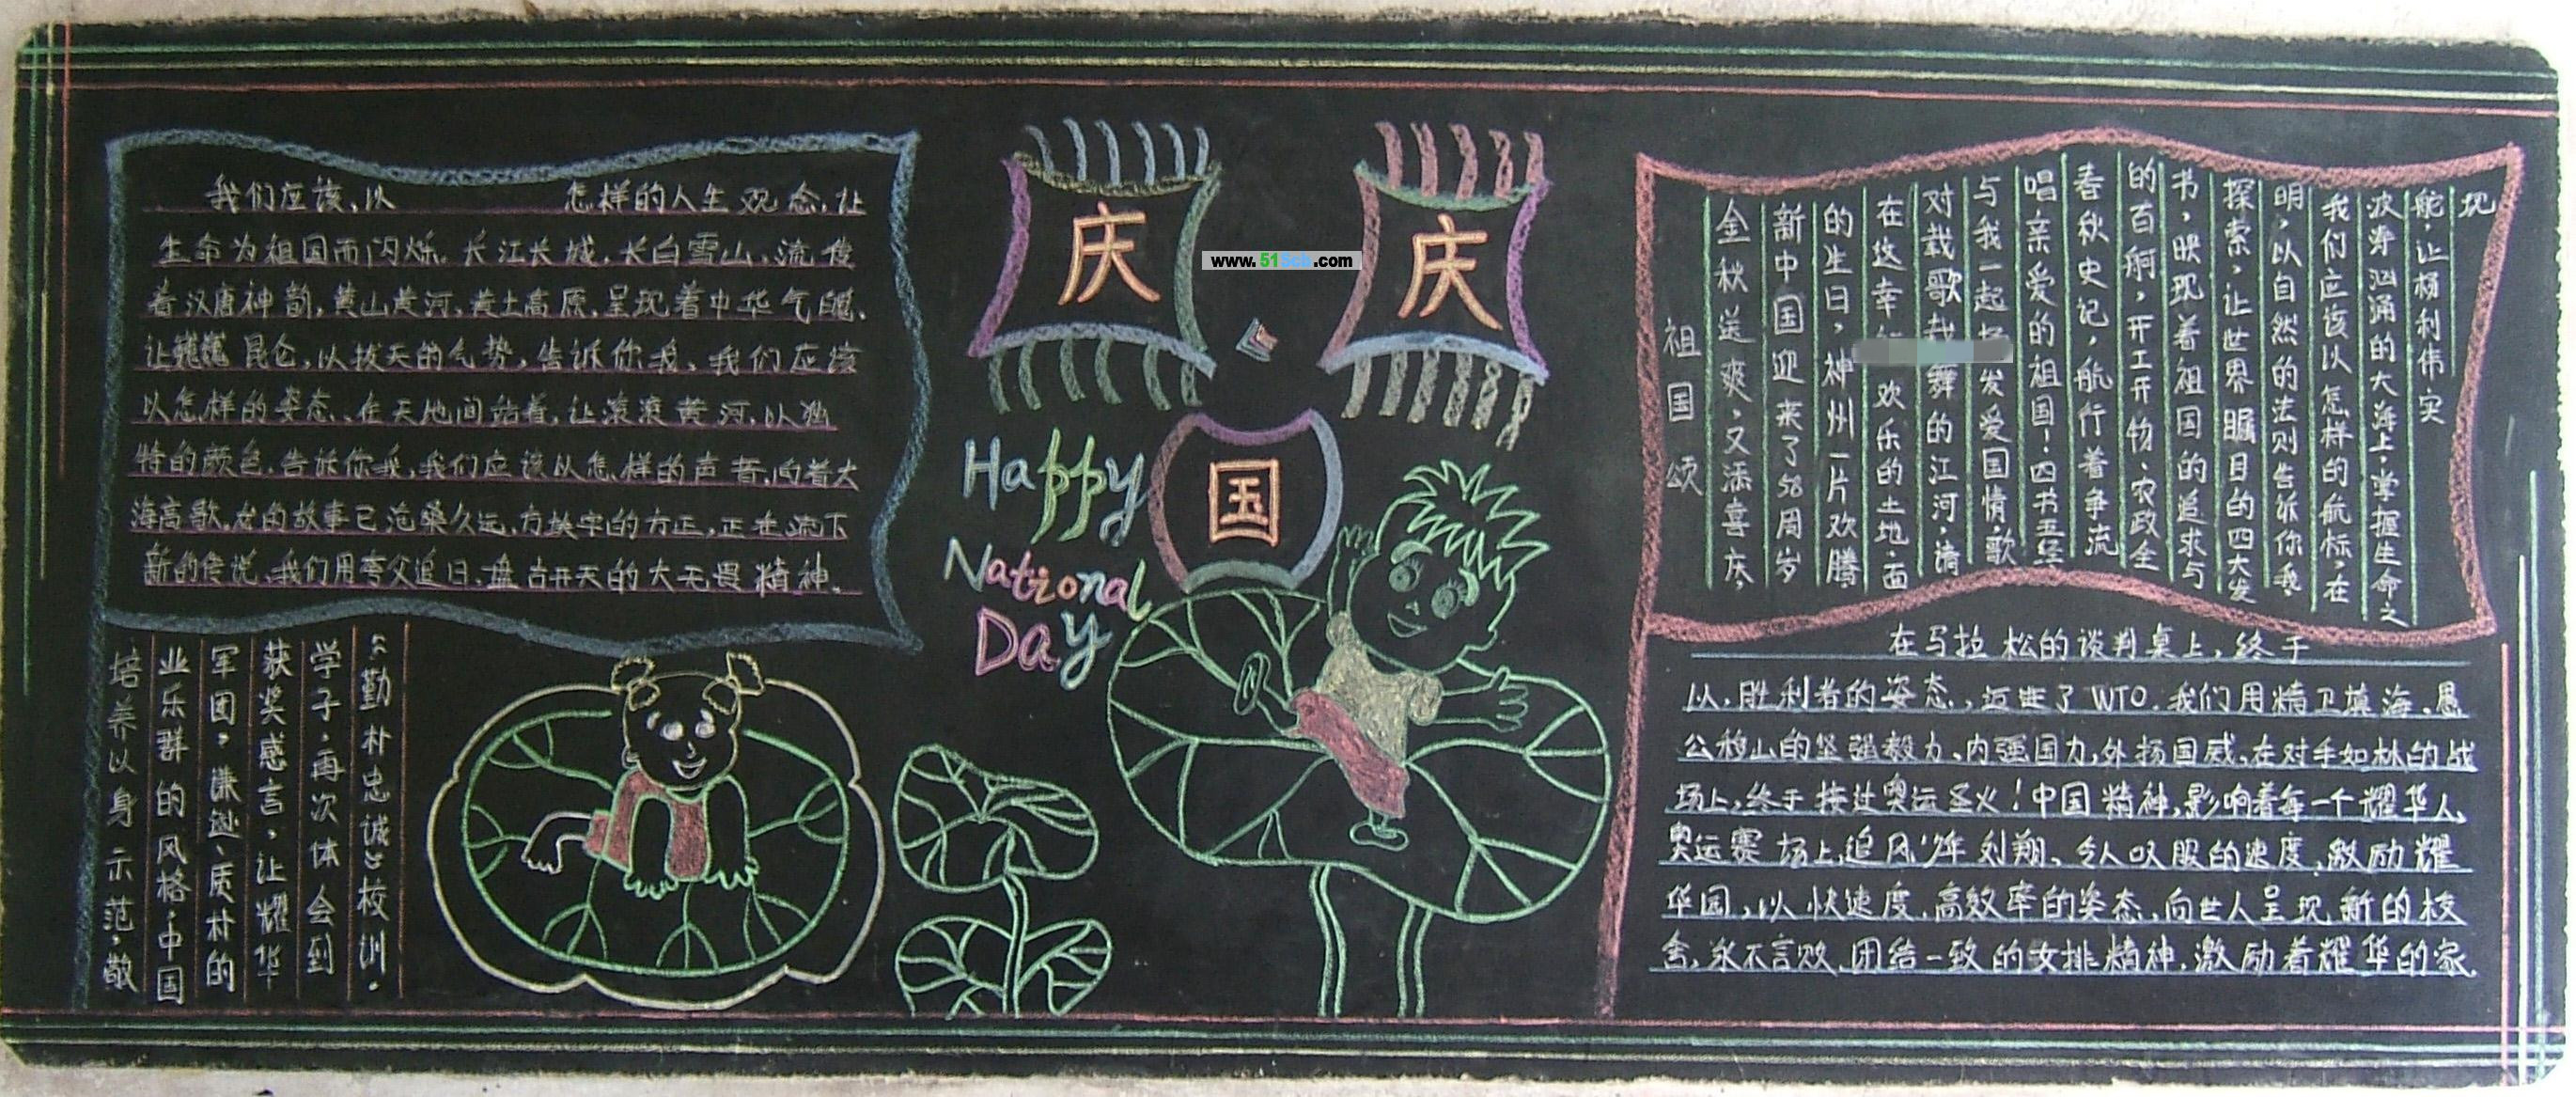 我们应该,以 怎样的人生观念,让
生命为祖国而闪烁.长江长城,长白雪山,流传
着汉唐神韵,黄山黄河,黄土高原,呈现着中华气魄,
让巍巍昆仑,以拔天的气势,告诉你我,我们应该
以怎样的姿态、在天地间站着,让滚滚黄河,以独
特的颜色.告诉你我,我们应该以怎样的声音.向着大
海高歌.龙的故事已沧桑久远.方块字的方正,正在流下
新的传说,我们用夸父追日.盘古开天的大无畏精神.
"勤朴忠诚"校训.
学子.再次体会到
获奖感言,让耀华
军团,谦逊、质朴的
业乐群的风格.中国
培养以身示范,敬
庆
庆
www.51Scb.com
国
Happy
National
Day
祖国颂
金秋送爽,又添喜庆,
新中国迎来了58周岁
的生日,神州一片欢腾
在这幸 欢乐的土地.面
对载歌载舞的江河.请
与我一起 发爱国情.歌
唱亲爱的祖国!四书五经
春秋史记,航行着争流
的百舸,开工开物、农政全
书,映现着祖国的追求与
探索,让世界瞩目的四大发
明,以自然的法则告诉你我
我们应该以怎样的航标,在
波涛汹涌的大海上.掌握生命之
舵,让杨利伟实
现
在马拉松的谈判桌上,终于
以,胜利者的姿态,迈进了WTO.我们用精卫填海.愚
公移山的坚强毅力、内强国力,外扬国威,在对手如林的战
场上,终于接过奥运圣火!中国精神,影响着每一个耀华人,
奥运赛场上,追风少年刘翔、令人叹服的速度,激励耀
华园,以快速度.高效率的姿态,向世人呈现新的校
舍,永不言败.团结一致的女排精神.激励着耀华的家